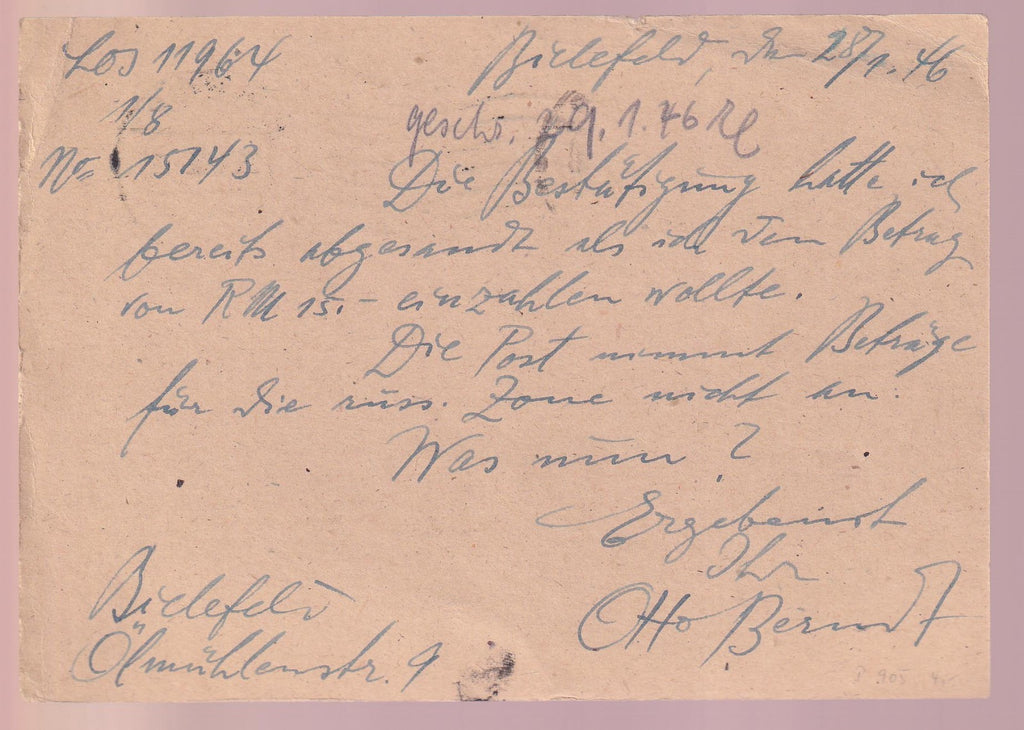 Los 11964
Bielefeld, den 28/1.46
1/8
geschr. 9.1.46
No 15143
Die Bestätigung hatte ich
bereits abgesandt als ich den Betrag
von RM 15.- einzahlen wollte.
Die Post nimmt Beträge
für die russ. Zone nicht an.
Was nun?
Ergebenst
Ihr
Otto Berndt
Bielefeld
Ölmühlenstr. 9